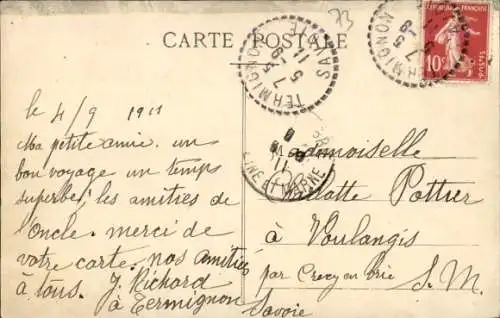 73
CARTE POSTALE
TERMIGNON
SAVOIE
5 -7
11
RÉPUBLIQUE FRANÇAISE
10c
POSTES
TERMIGNON
le 4/9 1911
Ma petite amie. un
bon voyage un temps
superbe. les amitiés de
l'oncle. merci de
votre carte. nos amitiés
à tous. J. Richard
à Termignon
Savoie
SEINE ET MARNE
Mademoiselle
Pottier
à Voulangis
par Crecy en brie S. M.